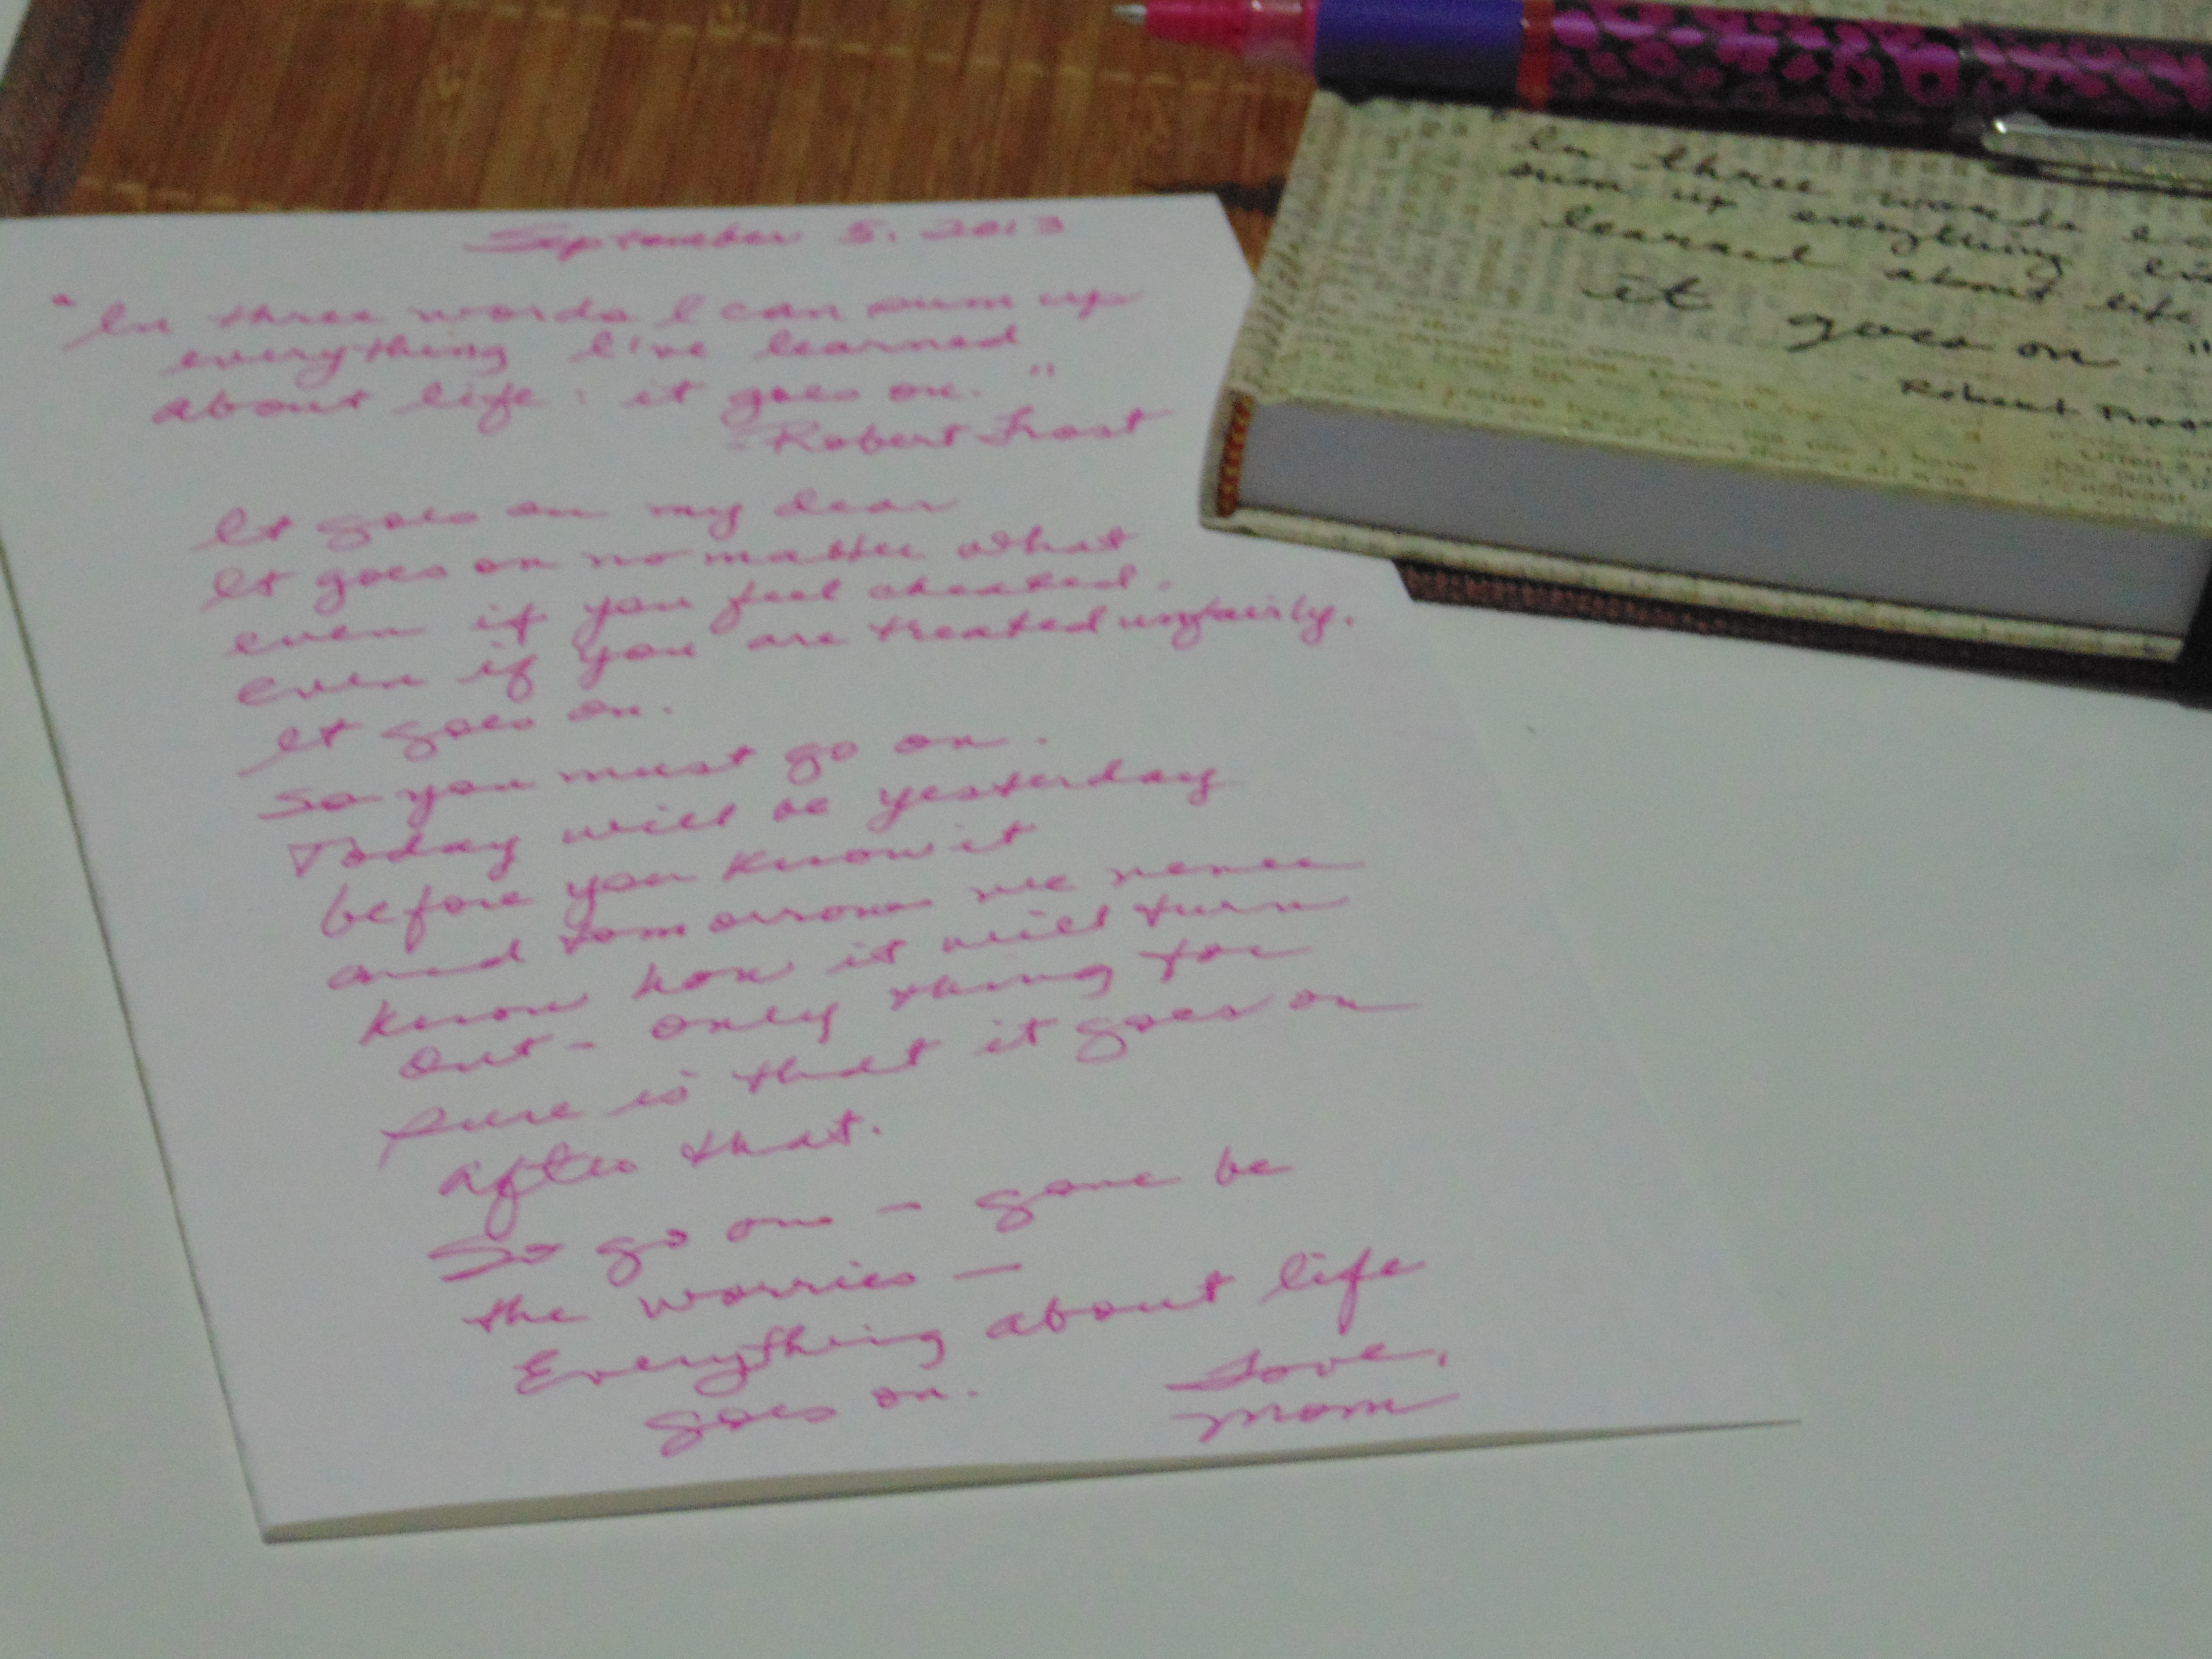 September 5, 2013
"In three words I can sum up
everything I've learned
about life: it goes on."
- Robert Frost
It goes on my dear
It goes on no matter what
even if you feel cheated.
even if you are treated unfairly.
It goes on.
So you must go on.
Today will be yesterday
before you know it
and tomorrow we never
know how it will turn
out - only thing for
sure is that it goes on
after that.
So go on - gone be
the worries -
Everything about life
goes on.
Love,
Mom
"In three words
sum up everything
learned about life
it goes on."
Robert